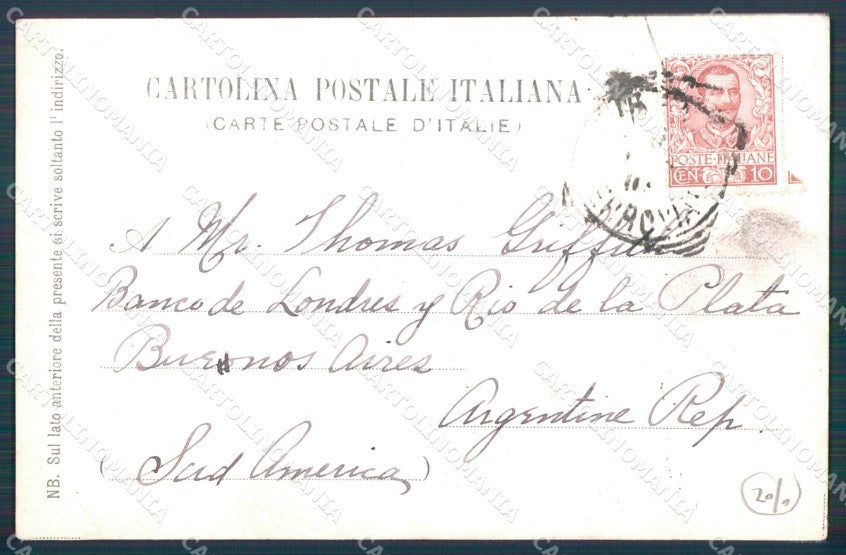 CARTOLINA POSTALE ITALIANA
(CARTE POSTALE D'ITALIE)
POSTE ITALIANE
CEN 10
A Mr. Thomas Griffin
Banco de Londres y Rio de la Plata
Buenos Aires
Argentine Rep.
(Sud America)
NB. Sul lato anteriore della presente si scrive soltanto l'indirizzo.
CARTOLINOMANIA